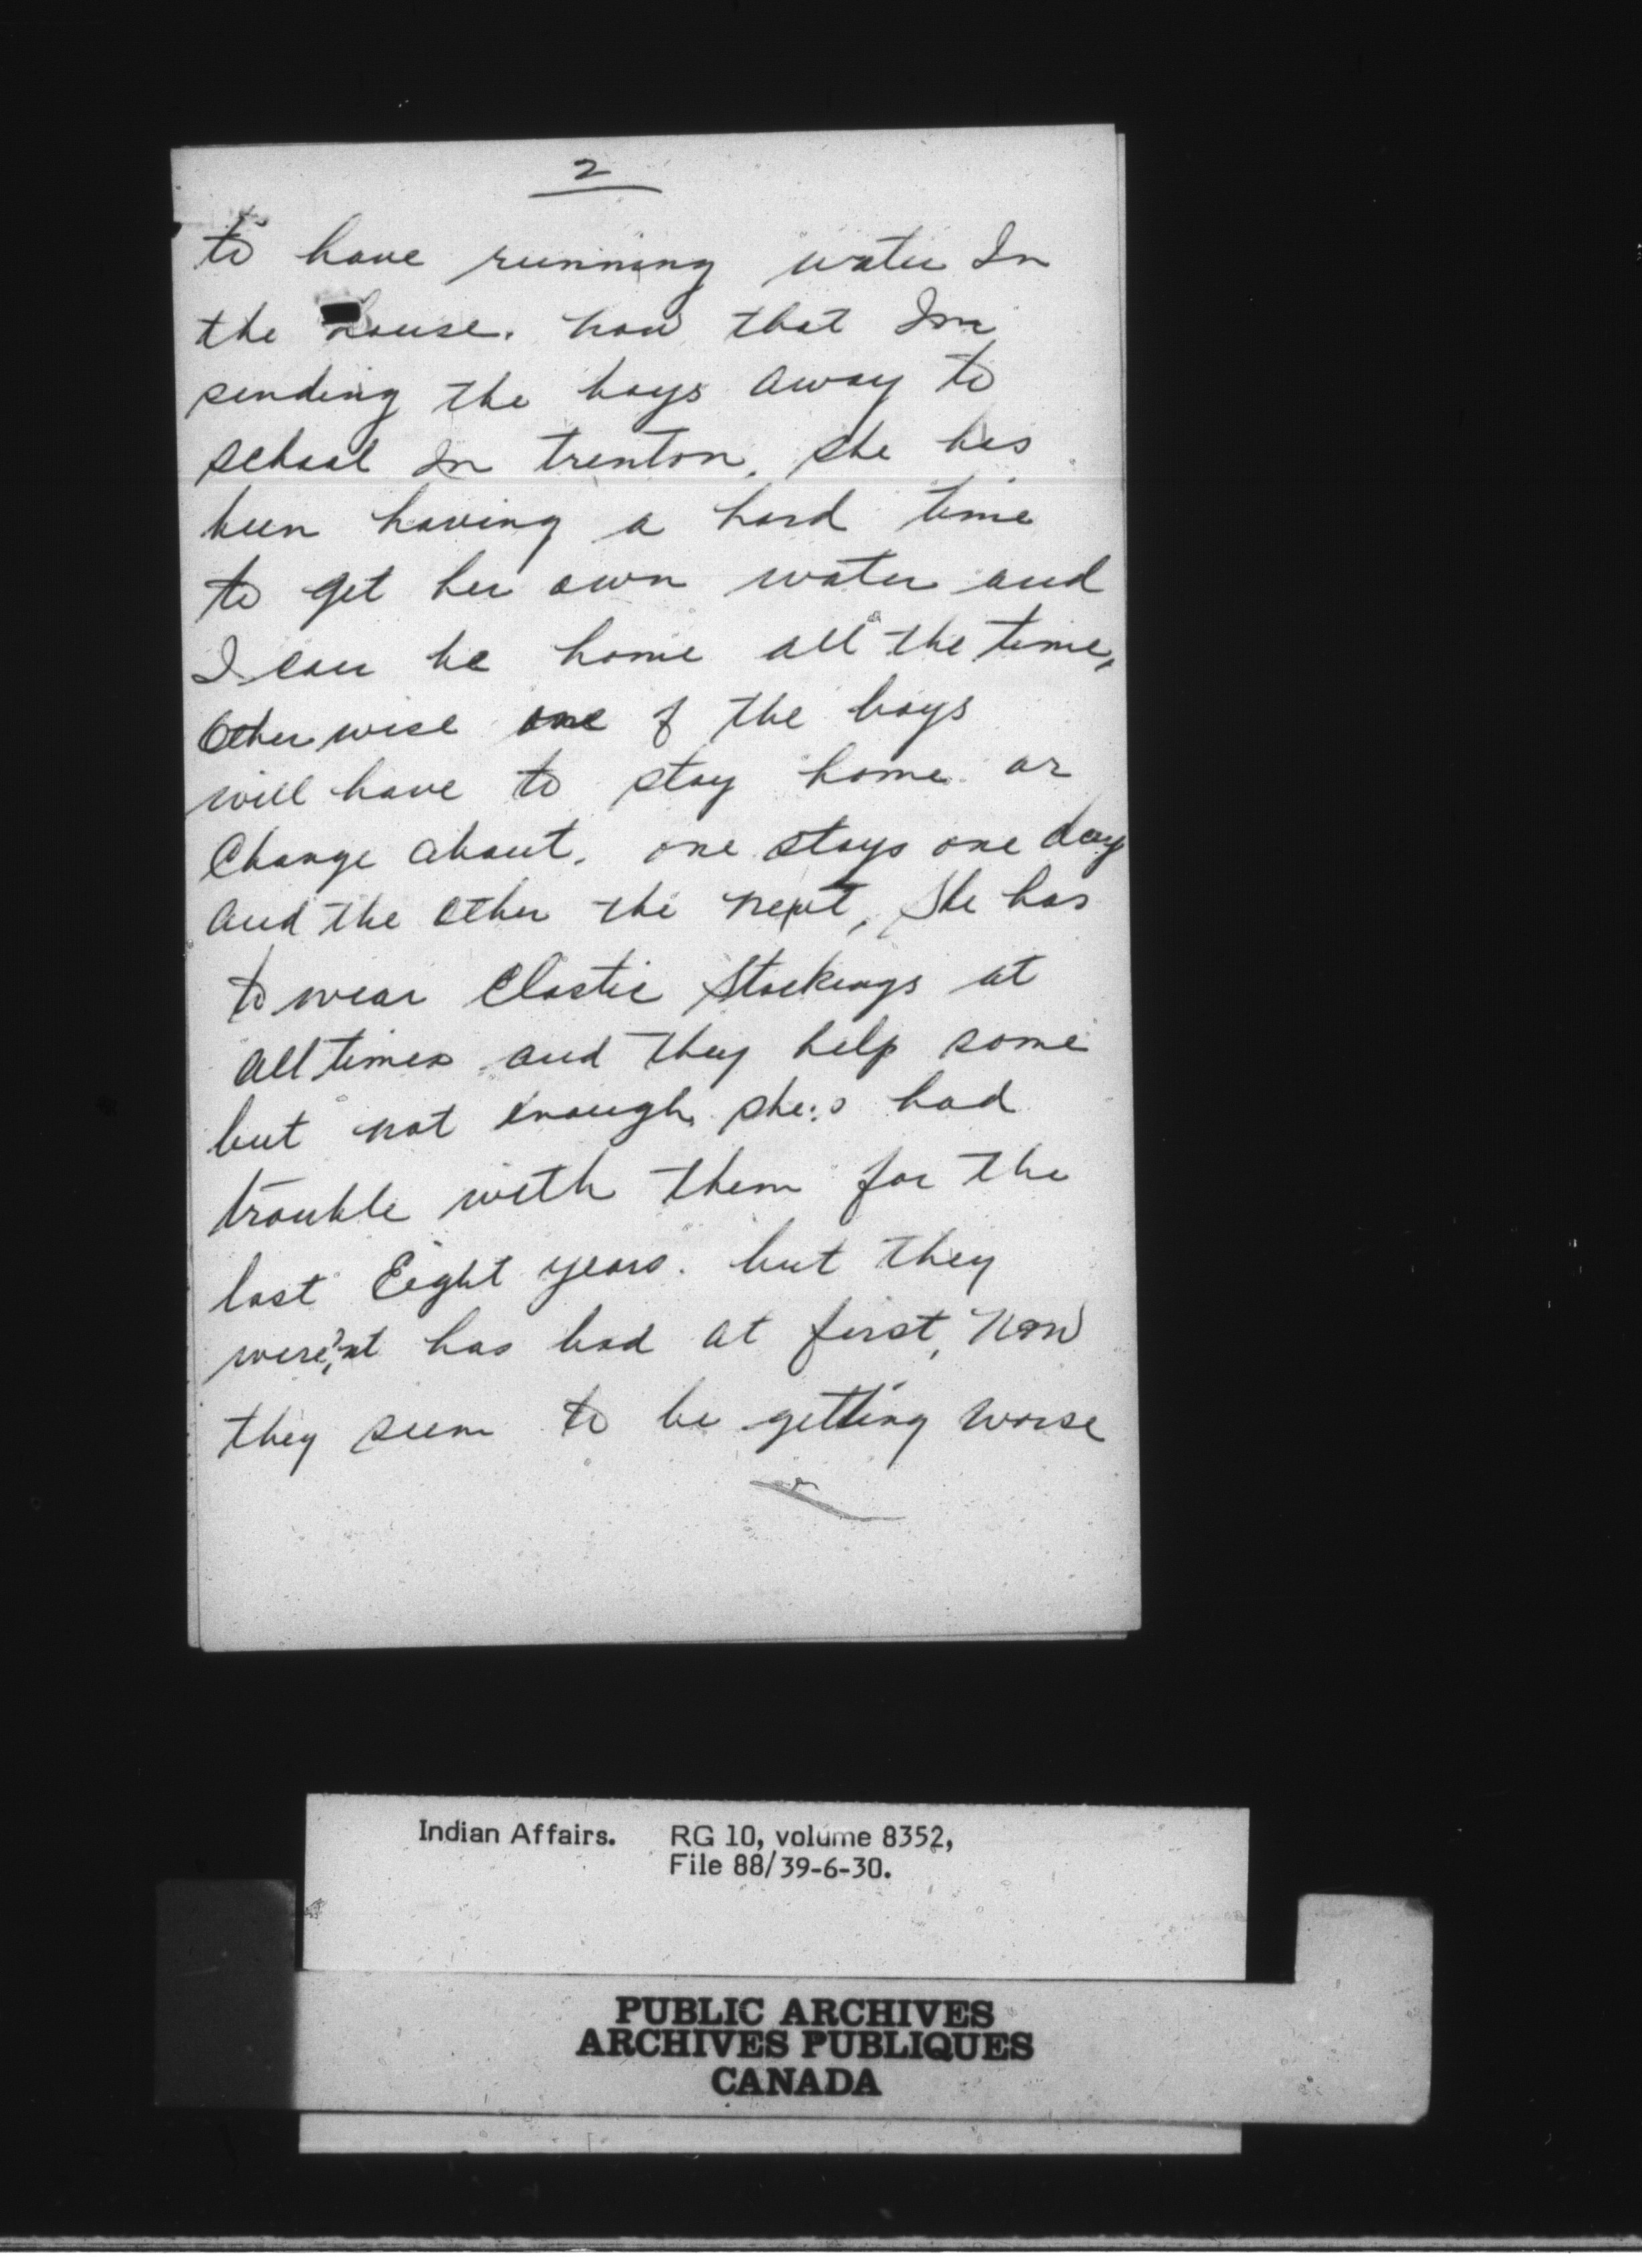 2
to have running water In
the house. now that Im
sending the boys away to
school In trenton, she has
been having a hard time
to get her own water and
I can be home all the time,
Otherwise one of the boys
will have to stay home or
Change about. one stays one day
and the other the next, She has
to wear Elastic Stockings at
all times and they help some
but not Enough, she's had
trouble with them for the
last Eight years. but they
were'nt has bad at first, Now
they seem to be getting worse
Indian Affairs. RG 10, volume 8352,
File 88/39-6-30.
PUBLIC ARCHIVES
ARCHIVES PUBLIQUES
CANADA